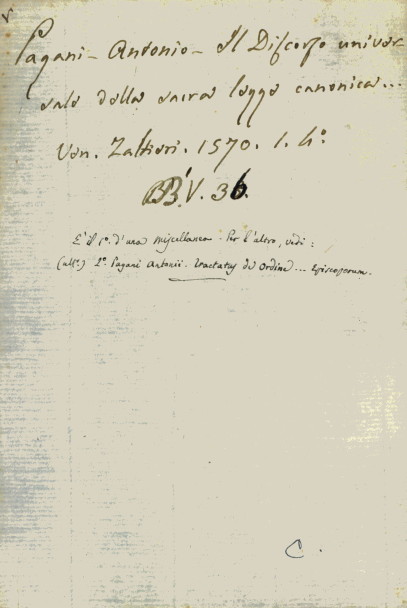 Pagani - Antonio - Il Discorso univer
sale della sacra legge canonica...
Ven. Zaltieri. 1570. 1. 4°.
BB.V. 36.
E' il 1°. d'una miscellanea. Per l'altro, vedi:
(all°.) 2°. Pagani Antonii. Tractatus de Ordine ... Episcoporum.
C.